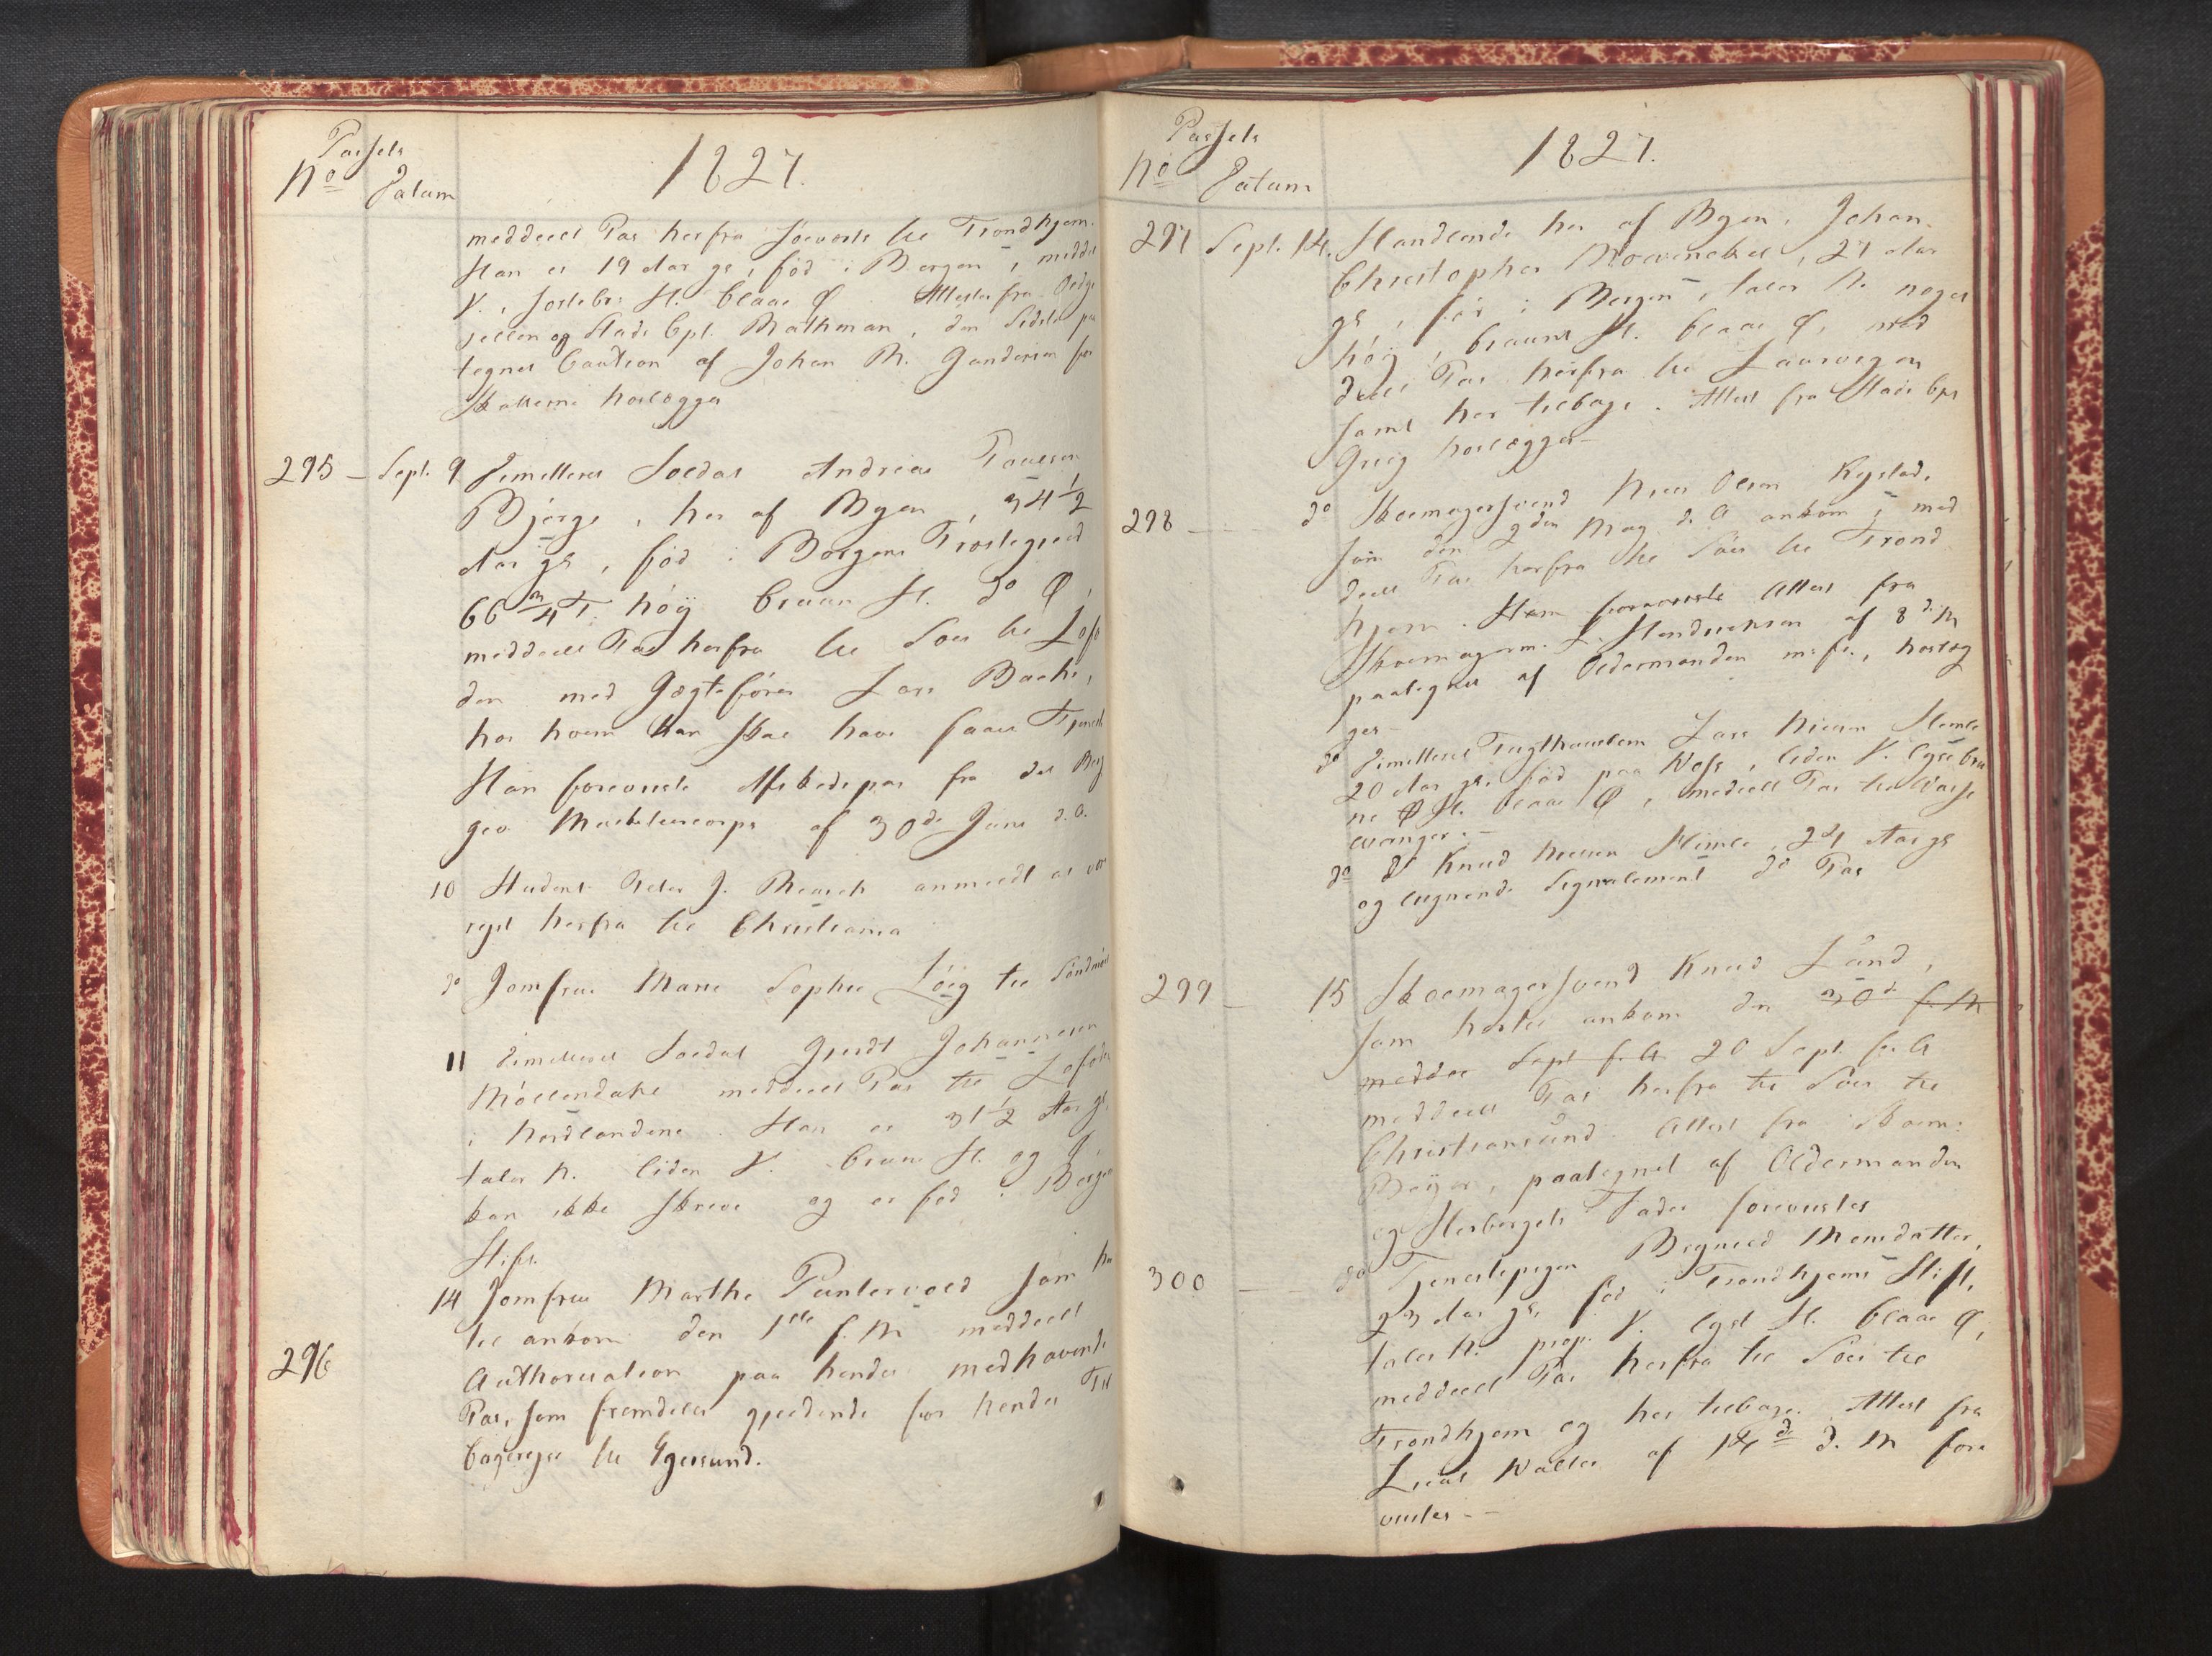 Passets
No Datum
1827.
meddeelt Pas herfra Søeværts til Trondhjem.
Han er 19 Aar gl, fød i Bergen, middel
V., hørlebr: H. blaae Ø Attester fra
og Stads Cpt. Rathman, den sidste paa
tegnet Caution af Johan R. Gundersen for
Skatterne hoslægges
295 – Sept. 9 Dimitteret Soldat Andreas Paulsen
Bjørge, her af Byen, 34 1/2
Aar gl, fød i Borgens Præstegield
66 3/4 T. høy bruun H. do Ø,
meddeelt Pas herfra til Søes til Lofo
den med Jægtefører Lars Bache,
hos hvem han skal have faaet Tjeneste
Han foreviiste Afskedspas fra det Berg
Musketeercorps af 30de Juni d. A.
10 Student Peter J. Reusch anmeldt at væ
reyst herfra til Christiania
do Jomfrue Marie Sophie Løeg til Søndmør
11 Dimitteret Soldat Gierdt Johannesen
Møllendahl meddeelt Pas til Lofoden
i Nordlandene. Han er 31 1/2 Aar gl,
taler N. liden V. bruun H. og Ø
kan ikke skrive og er fød i Bergens
Stift.
296
14 Jomfrue Marthe Puntervold som her
til ankom den 1ste f. M meddeelt
Authorisation paa hendes medhavende
Pas, som fremdeles gjeldende for hendes Til
bagereyse til Egersund.
Passets
No Datum
1827.
297 Sept. 14. Handlende her af Byen, Johan
Christopher Mowinckel, 27 Aar
gl, fød i Bergen, taler N. noget
høy, bruunt H. blaae Ø, med
deelt Pas herfra til Laurvigen
samt her tilbage. Attest fra Stads Cpt
Grieg hoslægges –
298 – do Skoemagersvend Niels Olsen Rystad,
som den 2den May d. A ankom, med
deelt Pas herfra til Søes til Trond
hjem. Han foreviiste Attest fra
Skoemagerm. L. Hendrichsen af 8 d. M
paategnet af Oldermanden m: fl., hoslæg
ges –
do Dimitteret Tugthuuslem Lars Nielsen Himle
20 Aar gl. fød paa Voss, liden V. lysebru
ne H. blaae Ø, meddeelt Pas til
vanger. –
do do Knud Nielsen Himle, 24 Aar gl
og lignende Signalement do Pas
299 – 15 Skoemagersvend Knud Lund,
som hertil ankom den 30d f. M
meddee Sept f. A 20 Sept. f. A
meddeelt Pas herfra til Søes til
Christiansund. Attest fra Skoem:
Beyer, paategnet af Oldermanden
og Herbergets Fader foreviistes
300 – do Tjenestepigen Brynild Monsdatter,
23 Aar gl. fød i Trondhjems Stift,
taler N. prop. V. lyst H. blaae Ø,
meddeelt Pas herfra til Søes til
Trondhjem og her tilbage. Attest fra
Lieut Walter af 14de d. M fore
viistes. –